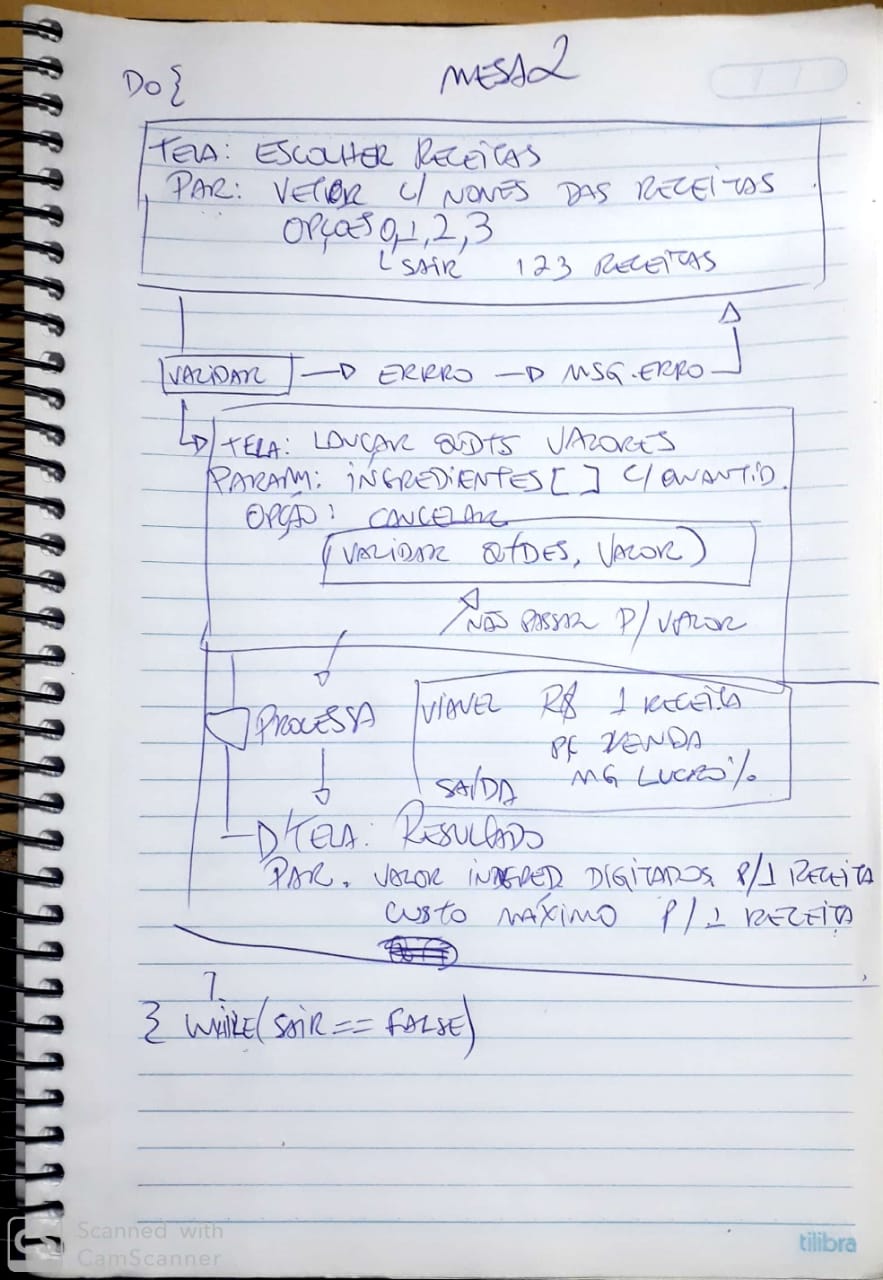 MESA 2
DO {
TELA: ESCOLHER RECEITAS
PAR: VETOR C/ NOMES DAS RECEITAS
OPÇOES 0,1,2,3
SAIR 123 RECEITAS
VALIDAR ERRRO MSG.ERRO
TELA: LANÇAR QDTS VALORES
PARAM: INGREDIENTES [ ] C/ QUANTID.
OPÇÃO: CANCELAR
(VALIDAR QTDES, VALOR)
NÃO PASSAR P/ VALOR
PROCESSA
VIAVEL R$ 1 RECEITA
VENDA
MG LUCRO %
SAÍDA
TELA: RESULTADO
PAR. VALOR INGRED DIGITADOS P/1 RECEITA
CUSTO MÁXIMO P/ 1 RECEITA
} WHILE(SAIR == FALSE)
Scanned with
CamScanner
tilibra